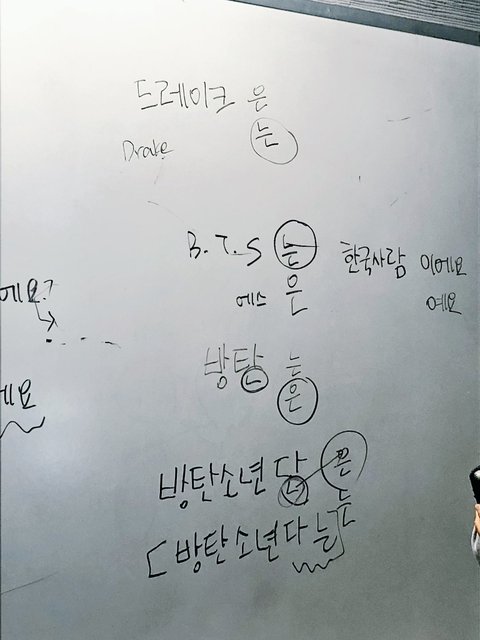 드레이크 은
는
Drake
B.T.S 는 한국사람 이에요
에스 은 예요
에요?
방탄 는
은
에요
방탄소년단 은
는
[방탄소년다 는